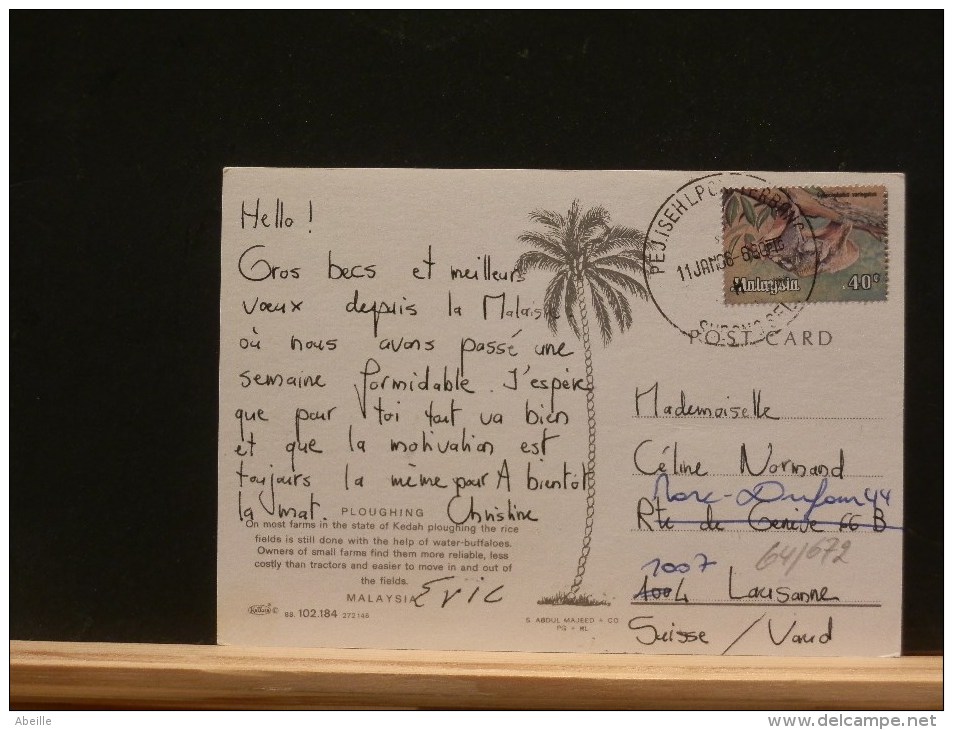 Hello !
Gros becs et meilleurs
vœux depuis la Malaisie
où nous avons passé une
semaine formidable. J'espère
que pour toi tout va bien
et que la motivation est
toujours la même pour A bientôt
la mat. Christine
Eric
PLOUGHING
On most farms in the state of Kedah ploughing the rice
fields is still done with the help of water-buffaloes.
Owners of small farms find them more reliable, less
costly than tractors and easier to move in and out of
the fields.
MALAYSIA
102.184 272165
S. ABDUL MAJEED & CO.
PG + KL
11 JAN
Malaysia 40c
POST CARD
Mademoiselle
Céline Normand
Marc-Dufour 44
Rte de Genève 66 B
64/672
1007
1004 Lausanne
Suisse / Vaud
Abeille
http://www.delcampe.net